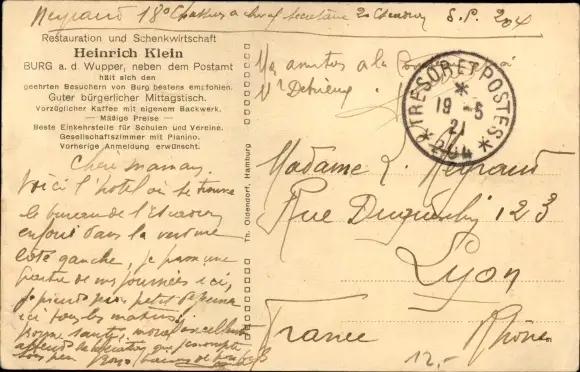 Meyrand 18e Chasseurs à cheval secrétaire 2e Escadron S.P. 204
Restauration und Schenkwirtschaft
Heinrich Klein
BURG a. d. Wupper, neben dem Postamt
hält sich den
geehrten Besuchern von Burg bestens empfohlen.
Guter bürgerlicher Mittagstisch.
Vorzüglicher Kaffee mit eigenem Backwerk.
— Mäßige Preise —
Beste Einkehrstelle für Schulen und Vereine.
Gesellschaftszimmer mit Pianino.
Vorherige Anmeldung erwünscht.
Chère maman,
Voici l'hôtel où se trouve
le bureau de l'Escadron
enfoui dans la verdure
côté gauche, je passe une
partie de mes journées ici,
je prends mon petit déjeuner
ici tous les matins.
bonne santé, moral excellent
Bons baisers de
Th. Oldendorf, Hamburg
amitiés à la
TRESOR ET POSTES
19 - 5
21
204
Madame L. Meyrand
Rue 123
Lyon
Rhône
France
12,-